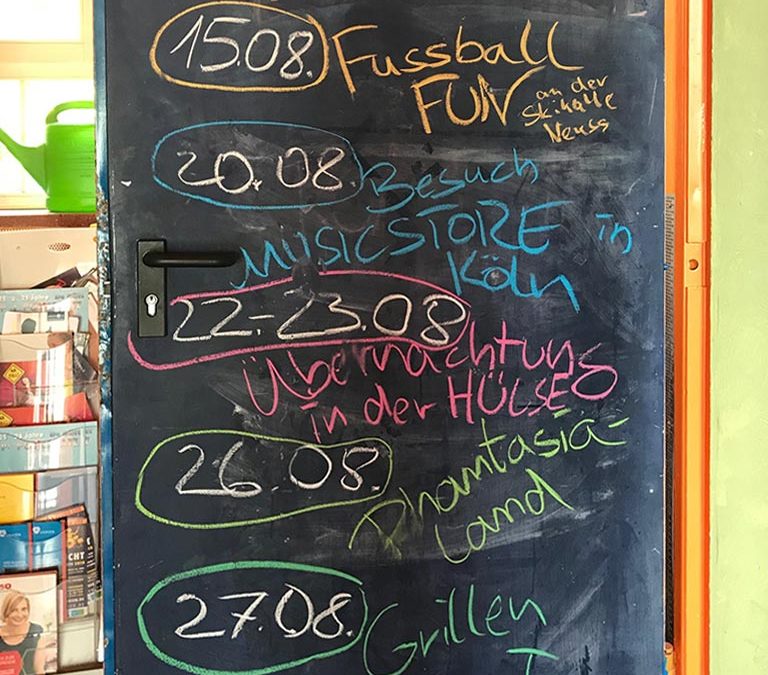 15.08. Fussball
FUN an der
Skihalle
Neuss
20.08. Besuch
MUSICSTORE in
Köln
22-23.08
Übernachtung
in der HÜLSE
26.08. Phantasia-
Land
27.08. Grillen